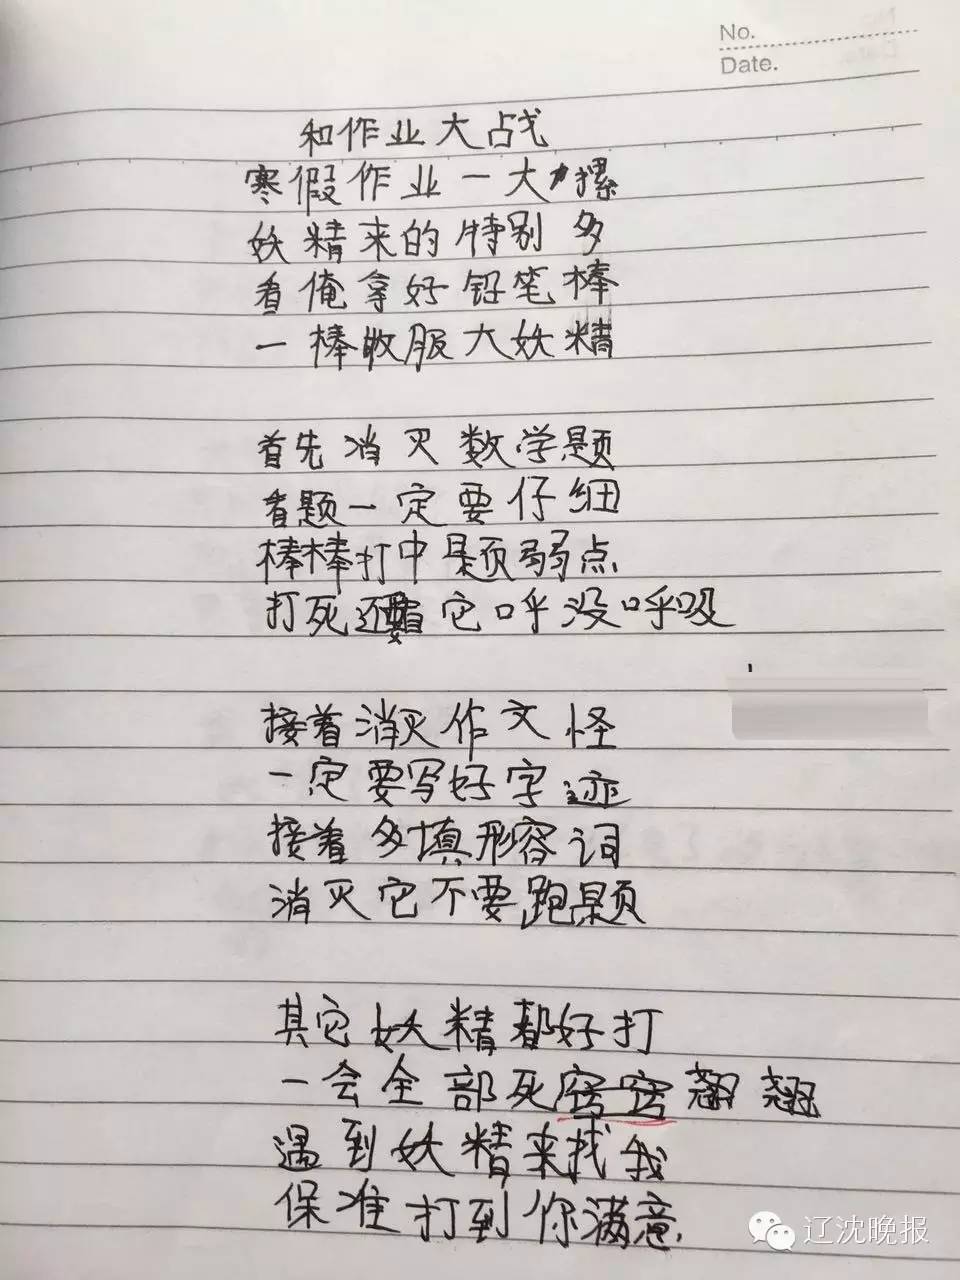 No.
Date.
和作业大战
寒假作业一大摞
妖精来的特别多
看俺拿好铅笔棒
一棒收服大妖精
首先消灭数学题
看题一定要仔细
棒棒打中题弱点
打死还要它呼没呼吸
接着消灭作文怪
一定要写好字迹
接着多填形容词
消灭它不要跑题
其它妖精都好打
一会全部死窍窍翘翘
遇到妖精来找我
保准打到你满意
辽沈晚报